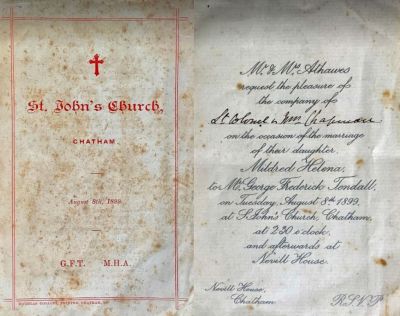 St. John's Church,
CHATHAM.
August 8th, 1899.
G.F.T. M.H.A.
Mr. & Mrs. Athawes
request the pleasure of
the company of
Lt Colonel & Mrs Chapman
on the occasion of the marriage
of their daughter
Mildred Helena,
to Mr. George Frederick Tendall,
on Tuesday, August 8th 1899,
at St John's Church, Chatham,
at 2.30 o'clock,
and afterwards at
Nevill House.
Nevill House,
Chatham.
R.S.V.P.